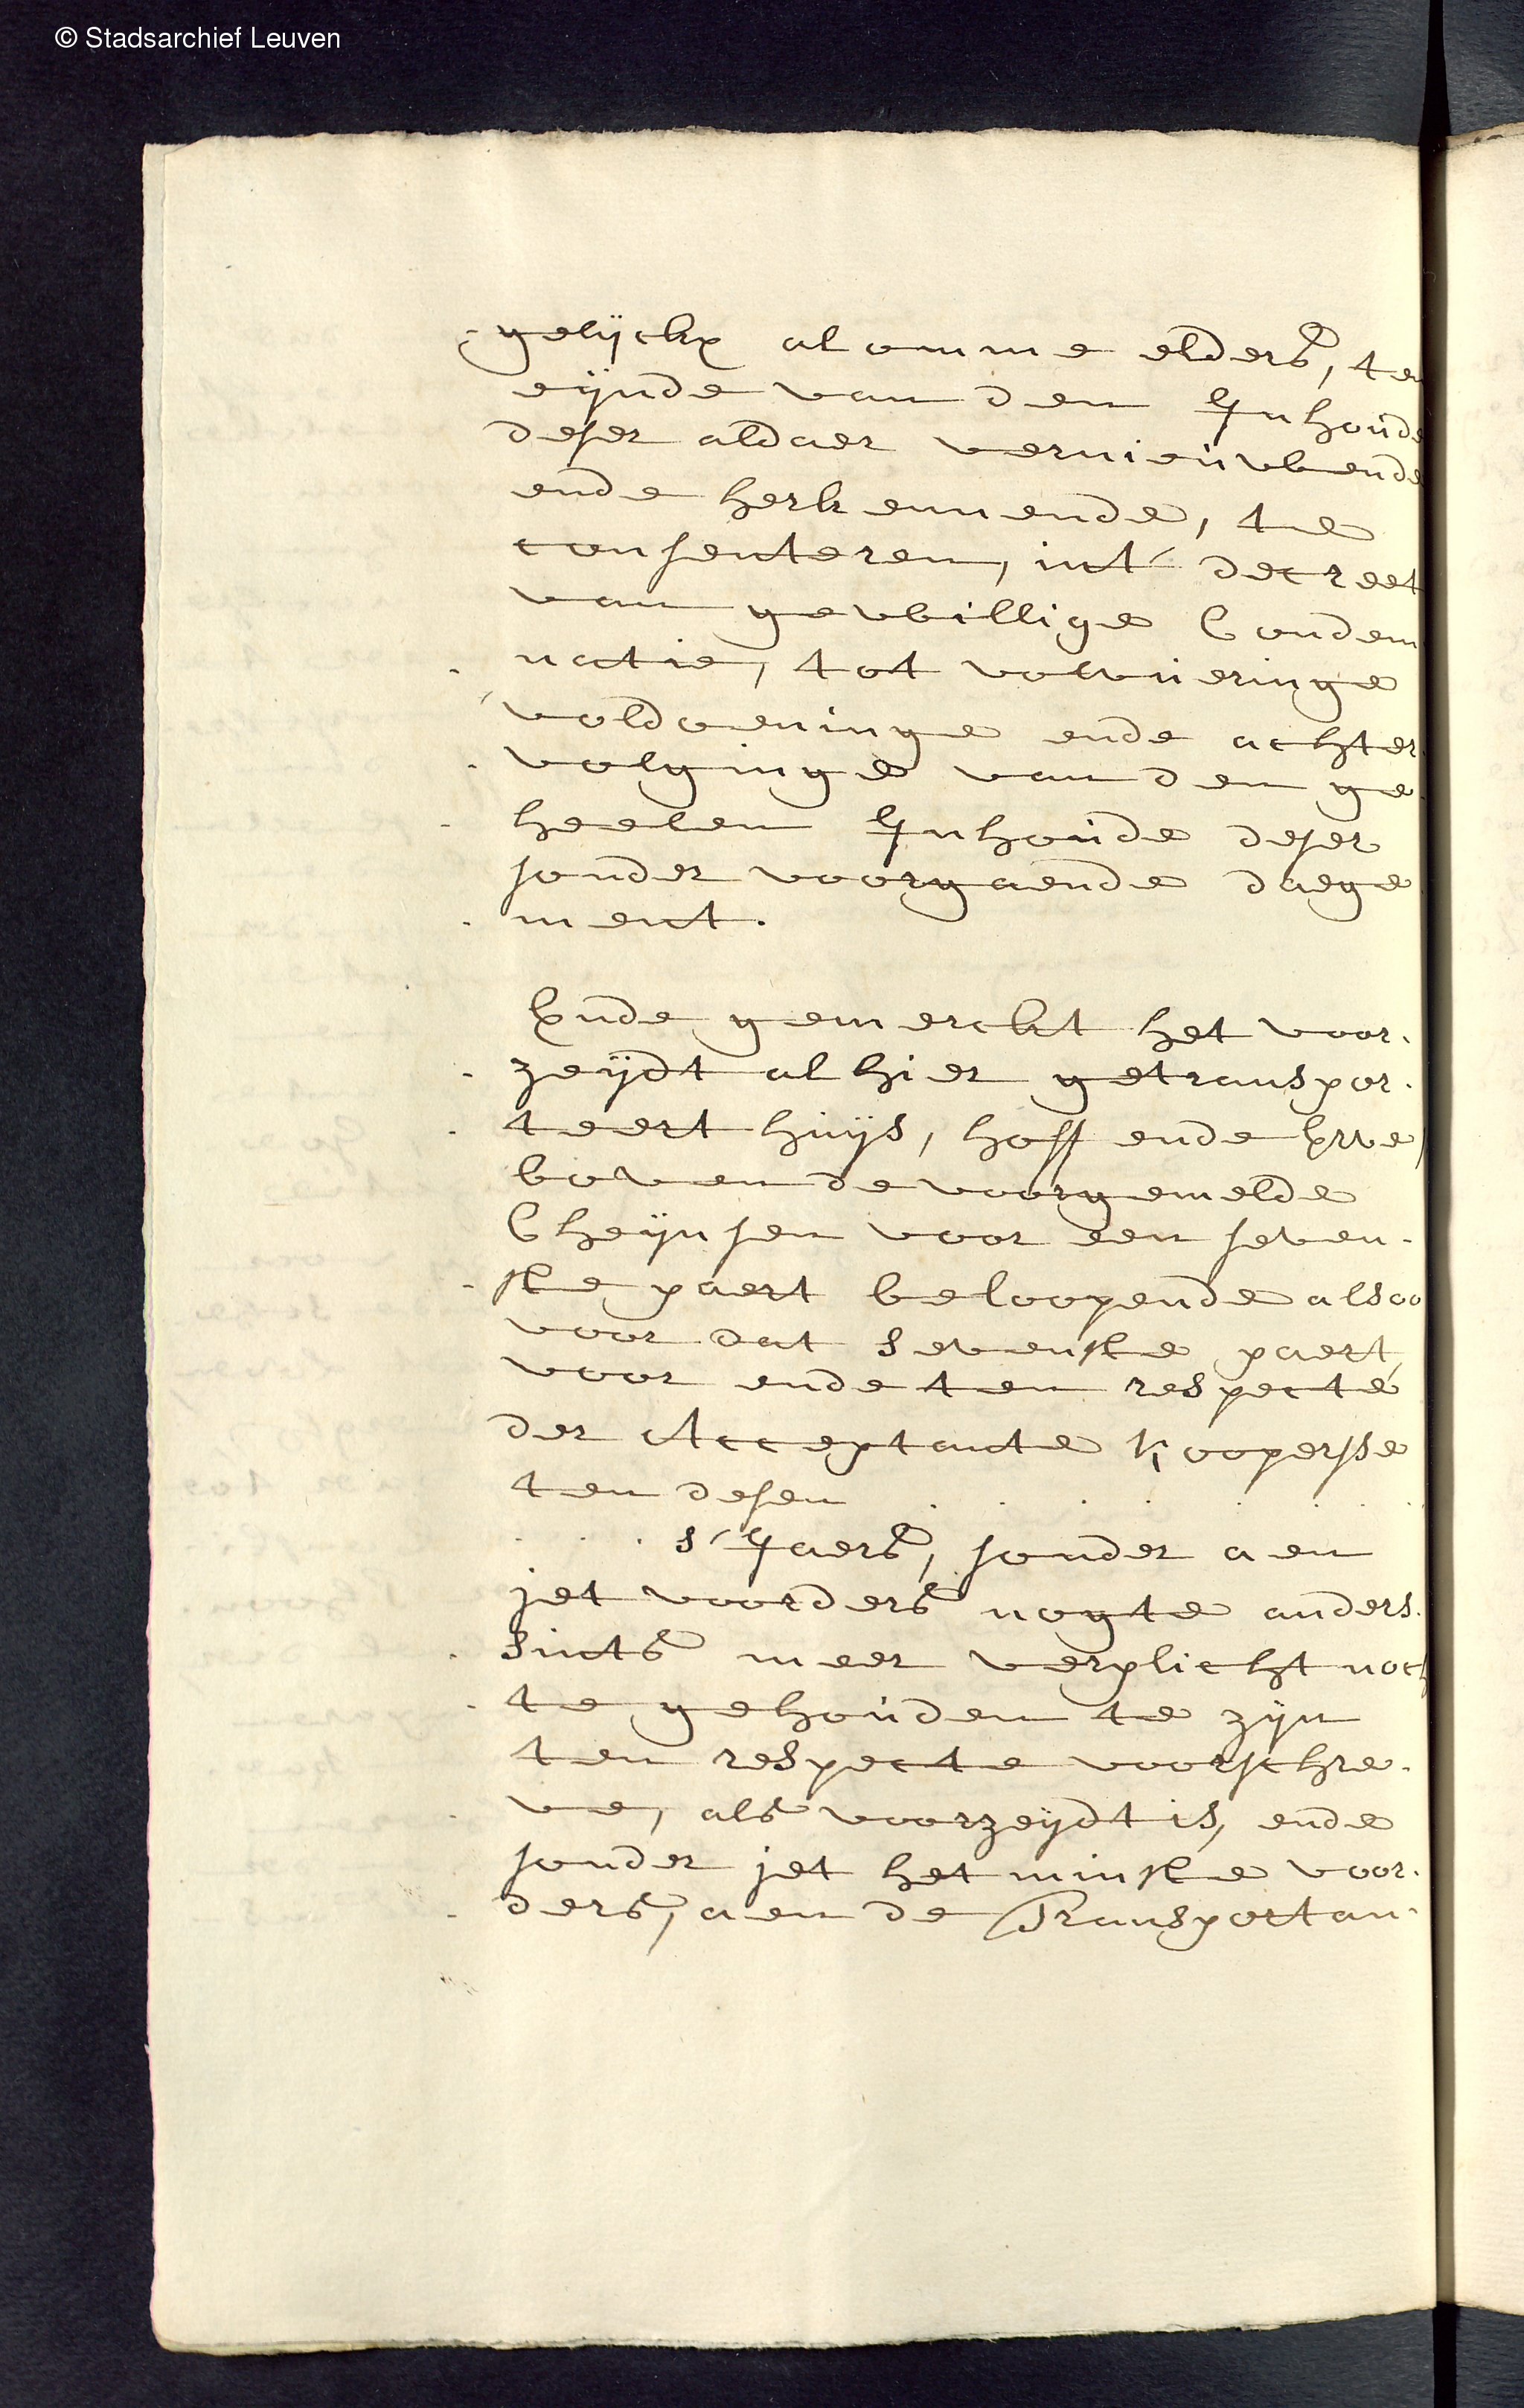 © Stadsarchief Leuven
gelijckx alomme elders, ten
eijnde van den Inhoude
deser aldaer vernieuwende
ende herkennende, te
consenteren, int' decreet
van gewillige Condem
natie, tot volvueringe
voldoeninge ende achter
volginge van den ge
heelen Inhoude deser
sonder voorgaende daege
ment.
Ende gemerckt het voor.
zeijdt alhier getranspor.
teert huijs, hoff ende Erve,
boven de voorgemelde
Cheijnsen voor een seven.
ste paert beloopende alsoo
voor dat sevenste paert,
voor ende ten respecte
der Acceptante Kooperse
ten desen . . . . .
. . . s' Jaers, sonder aen
jet voorders nogte anders.
sints meer verplicht noch
te gehouden te zijn
ten respecte voorschre.
ve, als voorzeijdt is, ende
sonder jet het minste voor.
ders, aen de Transportan.